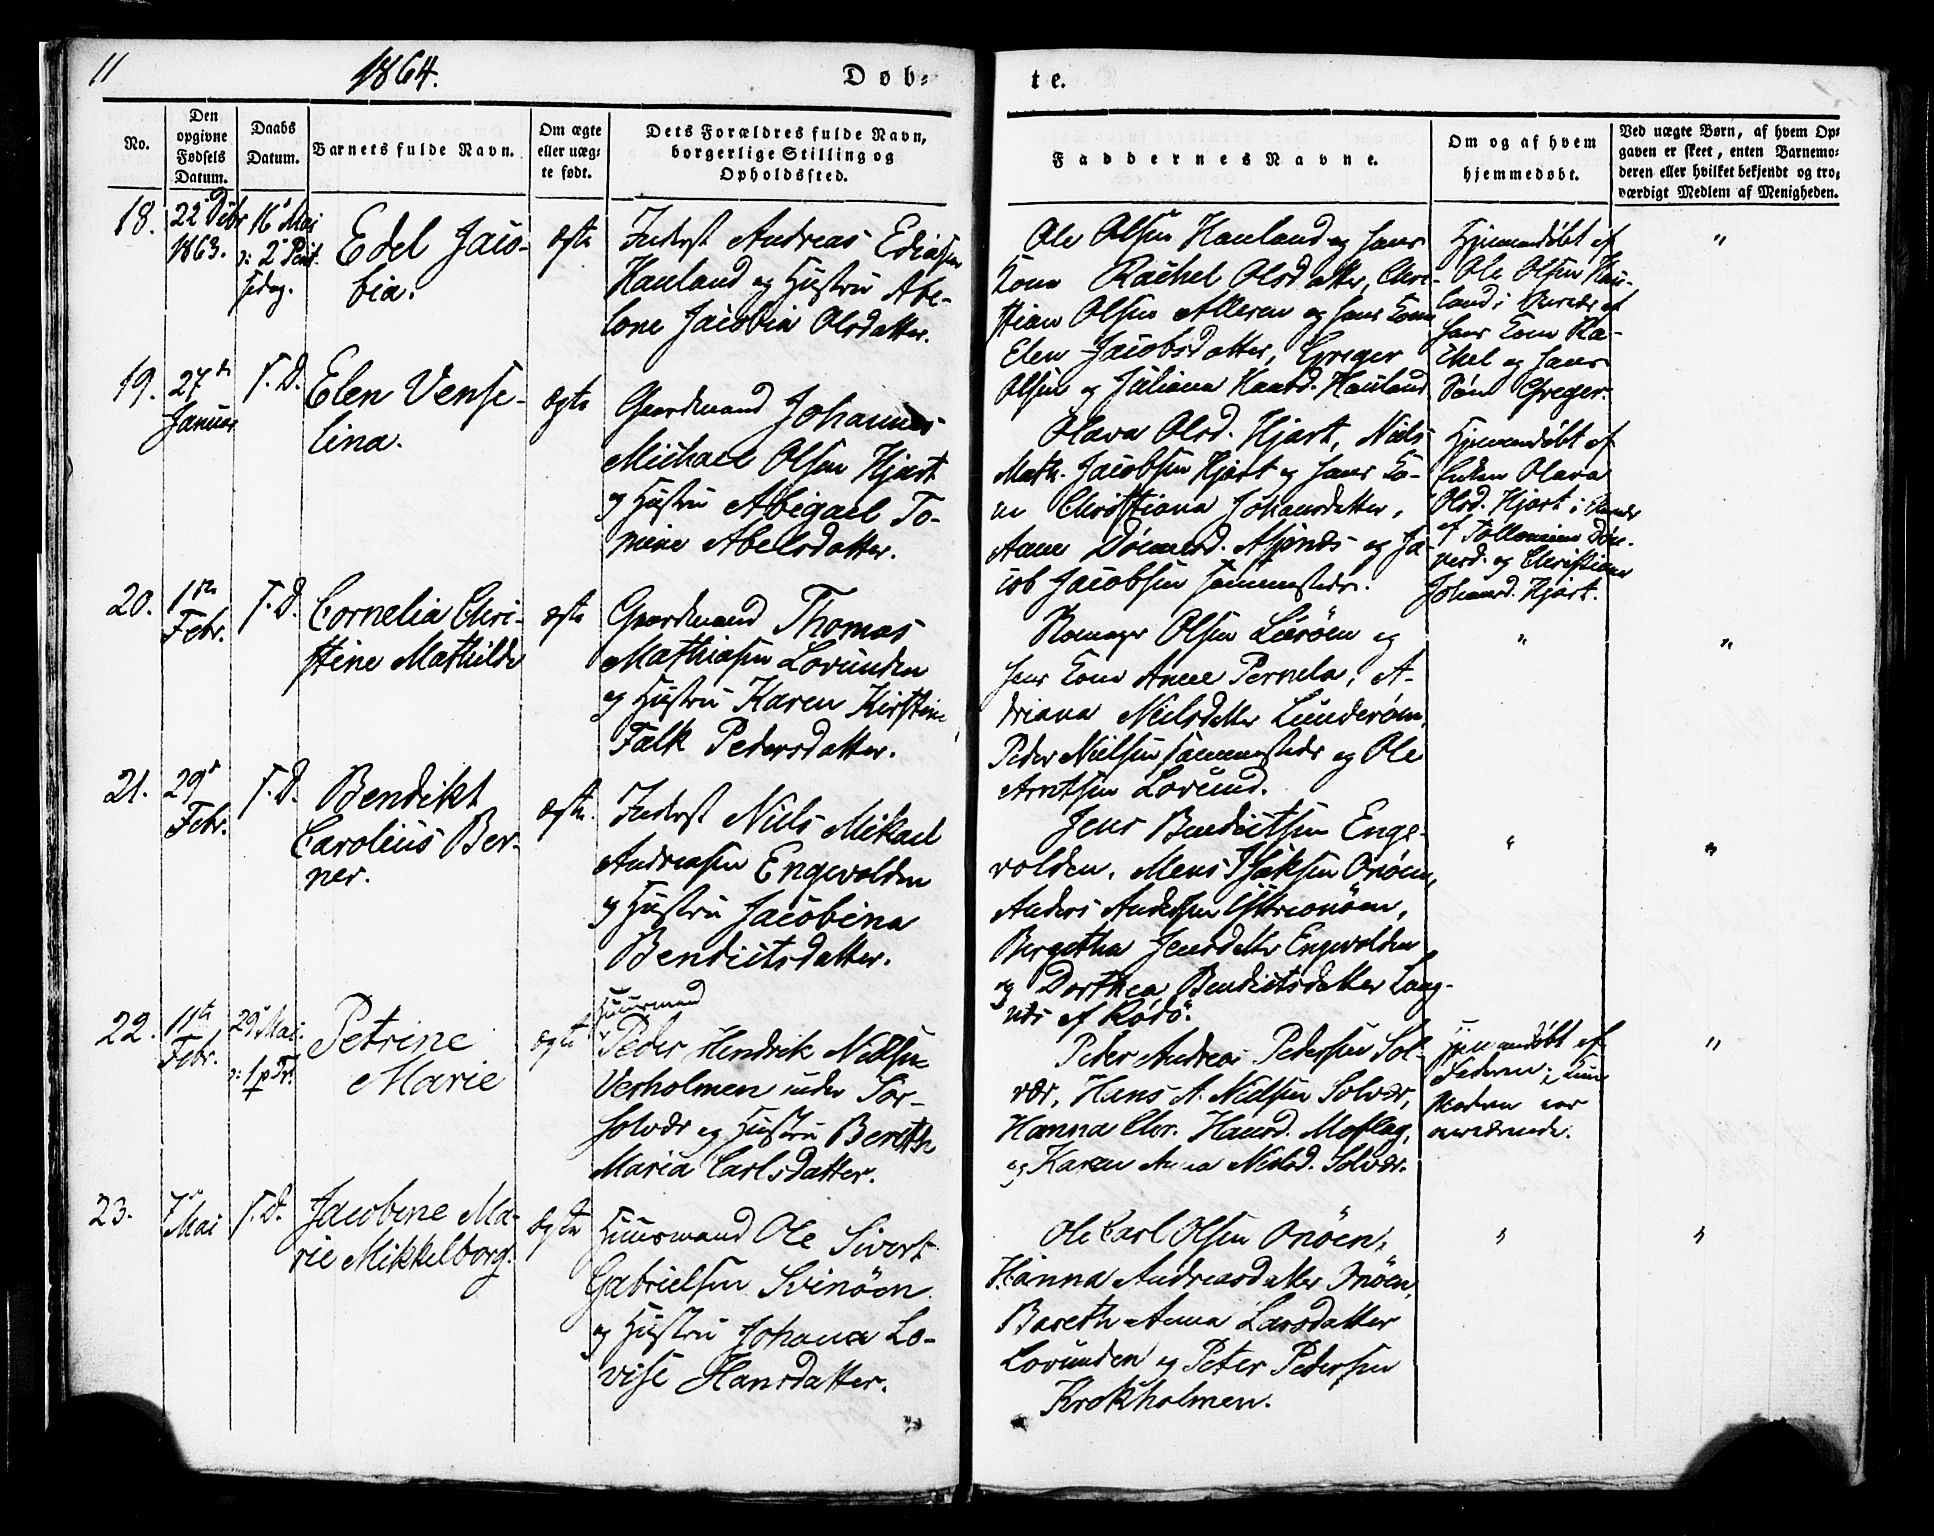 11
1864.
Døb-
te.
No.
Den
opgivne
Fødsels
Datum.
Daabs
Datum.
Barnets fulde Navn.
Om ægte
eller uæg-
te født.
Dets Forældres fulde Navn,
borgerlige Stilling og
Opholdssted.
Faddernes Navne.
Om og af hvem
hjemmedøbt.
Ved uægte Børn, af hvem Op-
gaven er skeet, enten Barnemo-
deren eller hvilket bekjendt og tro-
værdigt Medlem af Menigheden.
18.
22
1863.
16 Mai
ɔ: 2 Pint
sedag.
Edel Jaco-
bia.
ægte
Inderst Andreas
Hauland og Hustru Abe-
lone Jacobia Olsdatter.
Ole Olsen Hauland og hans
Kone Rachel Olsdatter, Chri-
stian Olsen og hans Kone
Elen Jacobsdatter, Greger
Olsen og Juliana Hauland
Hjemmedøbt af
Ole Olsen Hau-
land i Nærvær af
hans Kone Ra-
chel og hans
Søn Greger.
"
19.
27de
Januar
S. D.
Elen Vense-
lina.
ægte
Gaardmand Johannes
Michael Olsen Hjart
og Hustru Abigael To-
mine Abelsdatter.
Olava Olsd. Hjart, Niels
Math. Jacobsen Hjart og hans Ko-
ne Christiana Johansdatter,
Anne og Ja-
cob Jacobsen sammesteds.
Hjemmedøbt af
Enken Olava
Olsd. Hjart i Nærvær
af
og Christiana
Johansd. Hjart.
20.
1ste
Febr.
S. D.
Cornelia Chri-
stine Mathilde
ægte
Gaardmand Thomas
Mathiasen Lovunden
og Hustru Karen Kirstine
Falk Pedersdatter.
Olsen Lurøen og
hans Kone Anne Pernela, A-
driana Nielsdatter Lunderøen,
Peder Nielsen sammesteds og Ole
Arntsen Lovund.
"
"
21.
29
Febr.
S. D.
Bendikt
Carolius Ber-
ner.
ægte.
Inderst Niels Mikael
Andreasen Engevolden
og Hustru Jacobina
Bendictsdatter.
Jens Bendictsen Enge-
volden, Mens Isaksen Onøen,
Anders Andersen
Bergetha Jensdatter Engevolden
og Dorthea Bendictsdatter Lang-
nes af Rødø.
"
"
22.
11te
Febr.
29 Mai
ɔ: 1 p Tr.
Petrine
Marie
ægte
Huusmand
Peder Hendrik Nielsen
Verholmen under Sør-
solvær og Hustru Berith
Maria Carlsdatter.
Peder Andreas Pedersen Sol-
vær, Hans A. Nielsen Solvær,
Hanna Chr. Hansd. Moflag,
og Karen Anna Nielsd. Solvær.
Hjemmedøbt af
Faderen; kun
Moderen var
nærværende.
"
23.
7
Mai
S. D.
Jacobine Ma-
rie Mikkelborg.
ægte
Huusmand Ole Sivert
Gabrielsen Svinøen
og Hustru Johana Lo-
vise Hansdatter.
Ole Carl Olsen Onøen,
Hanna Andreasdatter Onøen,
Bereth Anna Larsdatter
Lovunden og Peter Pedersen
Krokholmen.
"
"